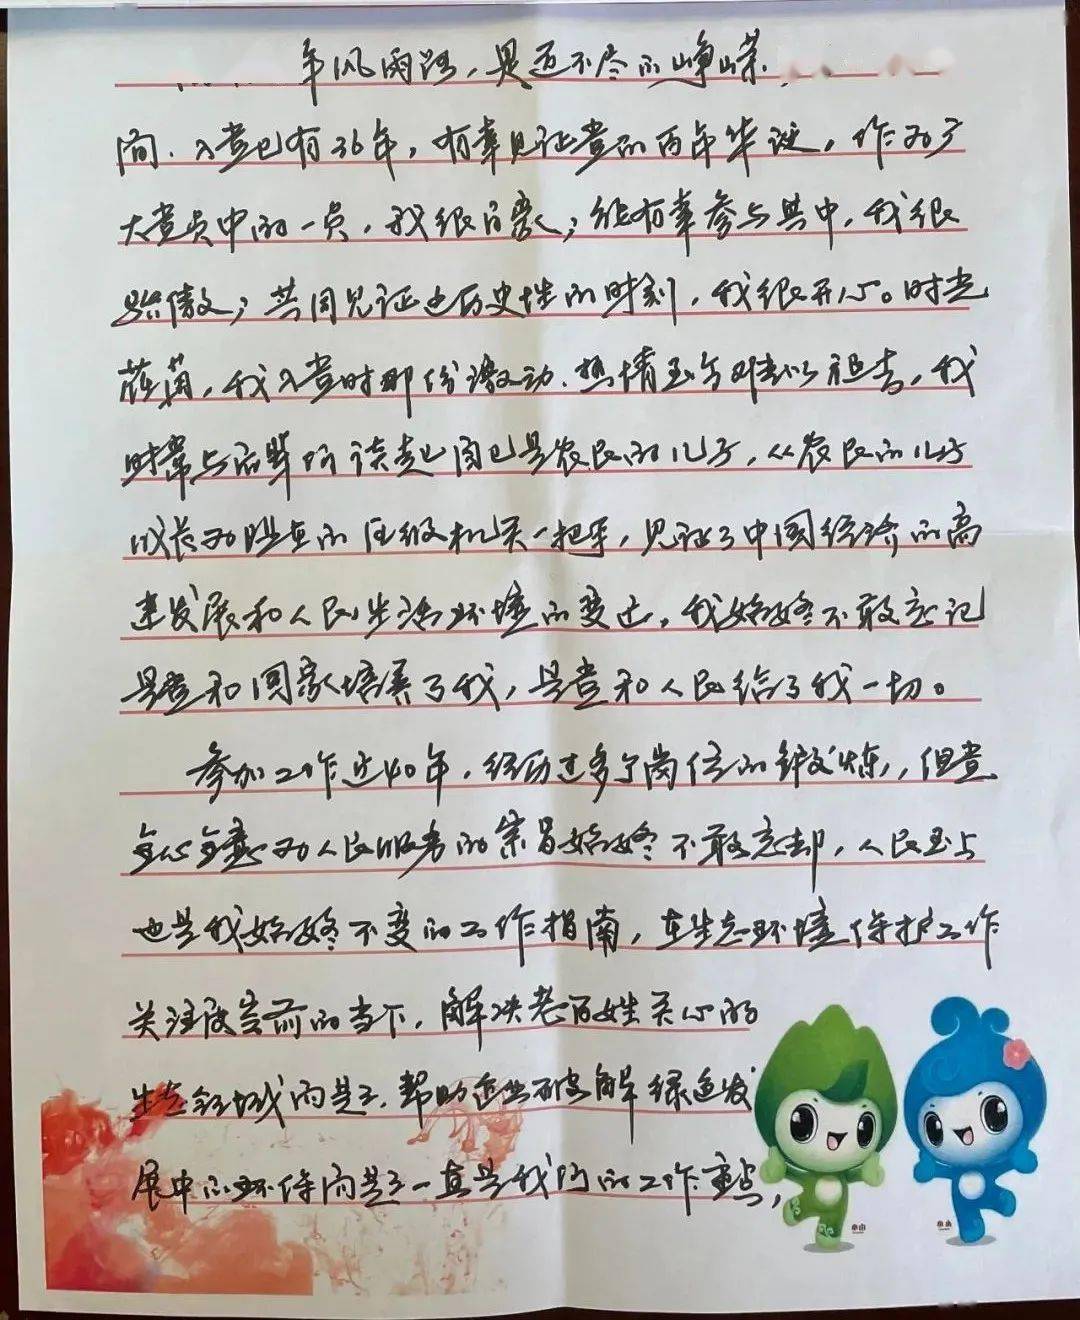 年风雨路，是道不尽的峥嵘，
间，入党已有36年，有幸见证党的百年华诞，作为广
大党员中的一员，我很自豪；能有幸参与其中，我很
骄傲；共同见证这历史性的时刻，我很开心。时光
荏苒，我入党时那份激动、热情至今难以褪去，我
时常与后辈们谈起自己是农民的儿子，从农民的儿子
成长为现在的区级机关一把手，见证了中国经济的高
速发展和人民生活环境的变迁，我始终不敢忘记
是党和国家培养了我，是党和人民给了我一切。
参加工作近40年，经历过多个岗位的锻炼，但党
全心全意为人民服务的宗旨始终不敢忘却，人民至上
也是我始终不变的工作指南，在生态环境保护工作
关注度空前的当下，解决老百姓关心的
生态领域的问题，帮助企业破解绿色发
展中的环保问题一直是我们的工作重点，